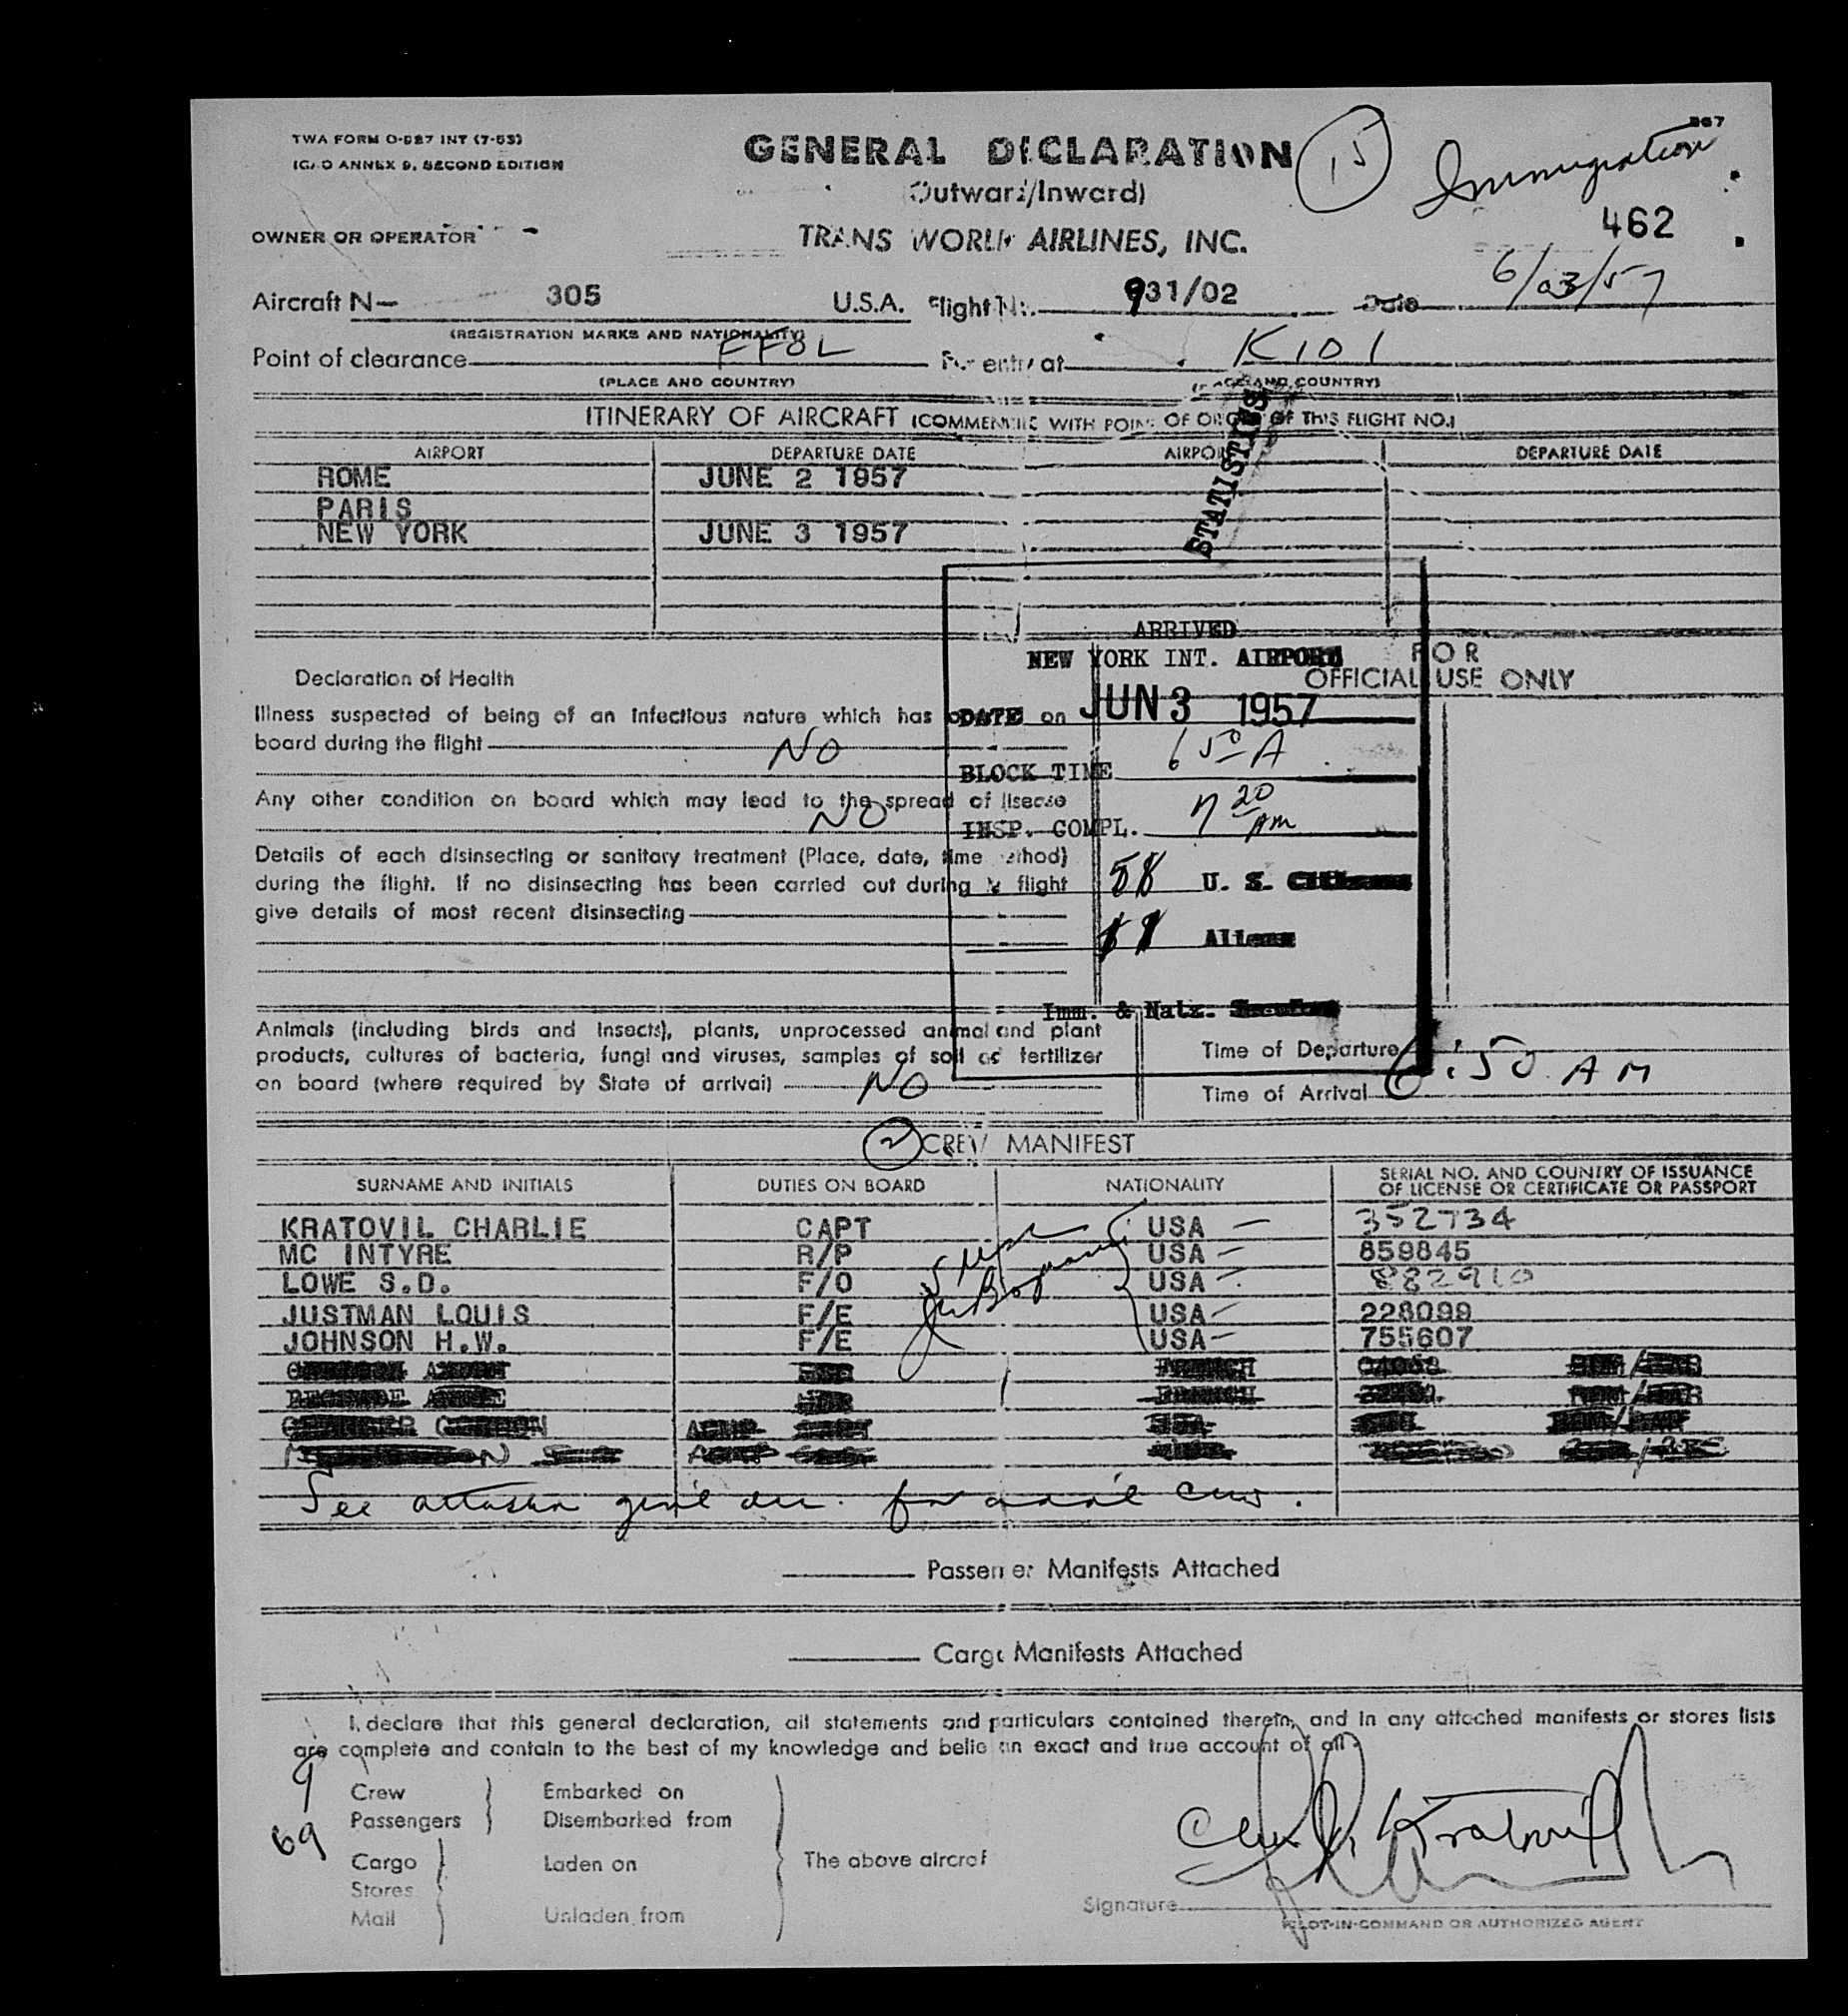 TWA FORM O-087 INT (7-53)
ICAO ANNEX 9, SECOND EDITION
GENERAL DECLARATION
(Outward/Inward)
15
Immigration
462
OWNER OR OPERATOR
TRANS WORLD AIRLINES, INC.
Aircraft N— 305 U.S.A. Flight No. 931/02 Date 6/03/57
(REGISTRATION MARKS AND NATIONALITY)
Point of clearance FFOL For entry at K101
(PLACE AND COUNTRY) (PLACE AND COUNTRY)
STATISTICS
ITINERARY OF AIRCRAFT (COMMENCING WITH POINT OF ORIGIN OF THIS FLIGHT NO.)
AIRPORT DEPARTURE DATE AIRPORT DEPARTURE DATE
ROME JUNE 2 1957
PARIS
NEW YORK JUNE 3 1957
ARRIVED
NEW YORK INT. AIRPORT
DATE JUN 3 1957
BLOCK TIME 6 50 A
INSP. COMPL. 7 20 AM
58 U. S. Citizens
11 Aliens
Imm. & Natz.
FOR
OFFICIAL USE ONLY
Declaration of Health
Illness suspected of being of an infectious nature which has on
board during the flight NO
Any other condition on board which may lead to the spread of disease
NO
Details of each disinsecting or sanitary treatment (Place, date, time method)
during the flight. If no disinsecting has been carried out during flight
give details of most recent disinsecting
Animals (including birds and insects), plants, unprocessed animal and plant
products, cultures of bacteria, fungi and viruses, samples of soil or fertilizer
on board (where required by State of arrival) NO
Time of Departure
Time of Arrival 6:50 AM
2 CREW MANIFEST
SURNAME AND INITIALS DUTIES ON BOARD NATIONALITY SERIAL NO. AND COUNTRY OF ISSUANCE
OF LICENSE OR CERTIFICATE OR PASSPORT
KRATOVIL CHARLIE CAPT USA — 352734
MC INTYRE R/P USA — 859845
LOWE S.D. F/O USA — 882910
JUSTMAN LOUIS F/E USA — 228099
JOHNSON H.W. F/E USA — 755607
See gen'l dec. for crew.
Passenger Manifests Attached
Cargo Manifests Attached
I declare that this general declaration, all statements and particulars contained therein, and in any attached manifests or stores lists
are complete and contain to the best of my knowledge and belief an exact and true account of all
9 Crew Embarked on
69 Passengers Disembarked from
Cargo Laden on The above aircraft
Stores
Mail Unladen from
Signature Kratovil
PILOT-IN-COMMAND OR AUTHORIZED AGENT